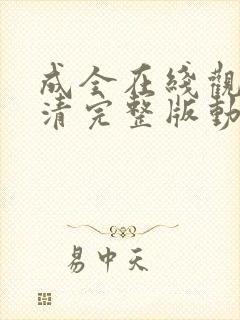 成全在綫觀
清完整版動
易中天